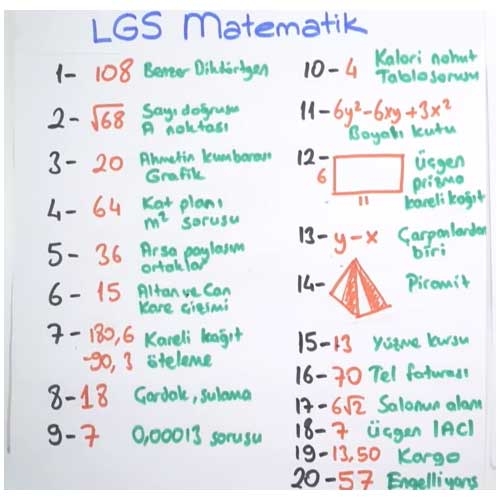 LGS Matematik
1- 108 Benzer Dikdörtgen
2- √68 Sayı doğrusu
A noktası
3- 20 Ahmetin kumbarası
Grafik
4- 64 Kat planı
m² sorusu
5- 36 Arsa paylaşım
ortaklar
6- 15 Altan ve Can
Kare çizimi
7- 180,6 Kareli kağıt
-90, 3 öteleme
8- 18 Çardak, sulama
9- 7 0,00013 sorusu
10- 4 Kalori nohut
Tablo sorusu
11- 6y²-6xy+3x²
Boyalı kutu
12- 6 11 üçgen
prizma
kareli kağıt
13- y-x Çarpanlardan
biri
14- Piramit
15- 13 Yüzme kursu
16- 70 Tel faturası
17- 6√2 Salonun alanı
18- 7 üçgen IACI
19- 13,50 Kargo
20- 57 Engelli yarış